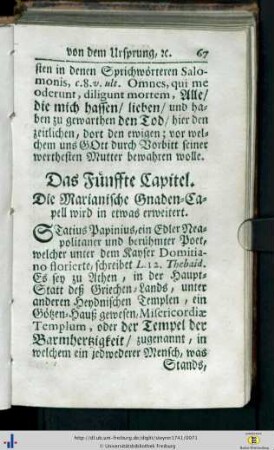 von dem Ursprung, ꝛc. 67
sten in denen Sprichwörteren Salo-
monis, c. 8. v. ult. Omnes, qui me
oderunt, diligunt mortem, Alle/
die mich hassen/ lieben/ und ha-
ben zu gewarthen den Tod/ hier den
zeitlichen, dort den ewigen; vor wel-
chem uns GOtt durch Vorbitt seiner
werthesten Mutter bewahren wolle.
Das Fünffte Capitel.
Die Marianische Gnaden-Ca-
pell wird in etwas erweitert.
STatius Papinius, ein Edler Nea-
politaner und berühmter Poet,
welcher unter dem Kayser Domitia-
no florierte, schreibet L. 12. Thebaid.
Es sey zu Athen, in der Haupt-
Statt deß Griechen-Lands, unter
anderen Heydnischen Templen, ein
Götzen-Hauß gewesen, Misericordiæ
Templum, oder der Tempel der
Barmhertzigkeit/ zugenannt, in
welchem ein jedwederer Mensch, was
Stands,
http://dl.ub.uni-freiburg.de/diglit/steyrer1741/0071
© Universitätsbibliothek Freiburg